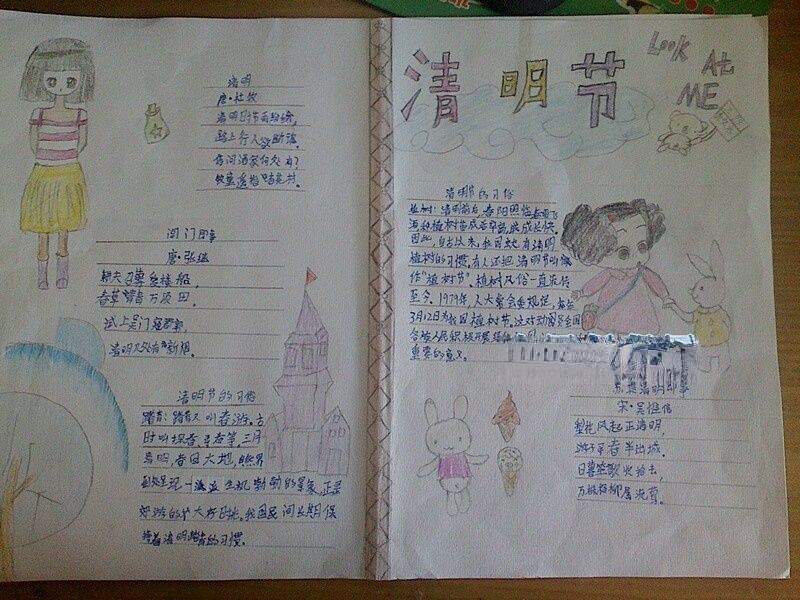 清明
唐·杜牧
清明时节雨纷纷,
路上行人欲断魂。
借问酒家何处有?
牧童遥指杏花村。
阊门即事
唐·张继
耕夫召募逐楼船,
春草青青万顷田。
试上吴门窥郡郭,
清明几处有新烟。
清明节的习俗
踏青:踏青又叫春游。古
时叫探春、寻春等。三月
清明,春回大地,自然界
到处呈现一派生机勃勃的景象,正是
郊游的大好日地。我国民间长期保
持着清明踏青的习惯。
清明节
Look At
ME
清明节的习俗
植树:清明前后,春阳照临,春雨飞
洒,种植树苗成活率高,成长快。
因此,自古以来,我国就有清明
植树的习惯。有人还把清明节叫做
作"植树节"。植树风俗一直流传
至今。1979年,人大常会委规定,每年
3月12日为我国植树节。这对动员全国
各族人民积极开展绿化
重要的意义。
苏堤清明即事
宋·吴惟信
梨花风起正清明,
游子寻春半出城。
日暮笙歌收拾去,
万株杨柳属流莺。